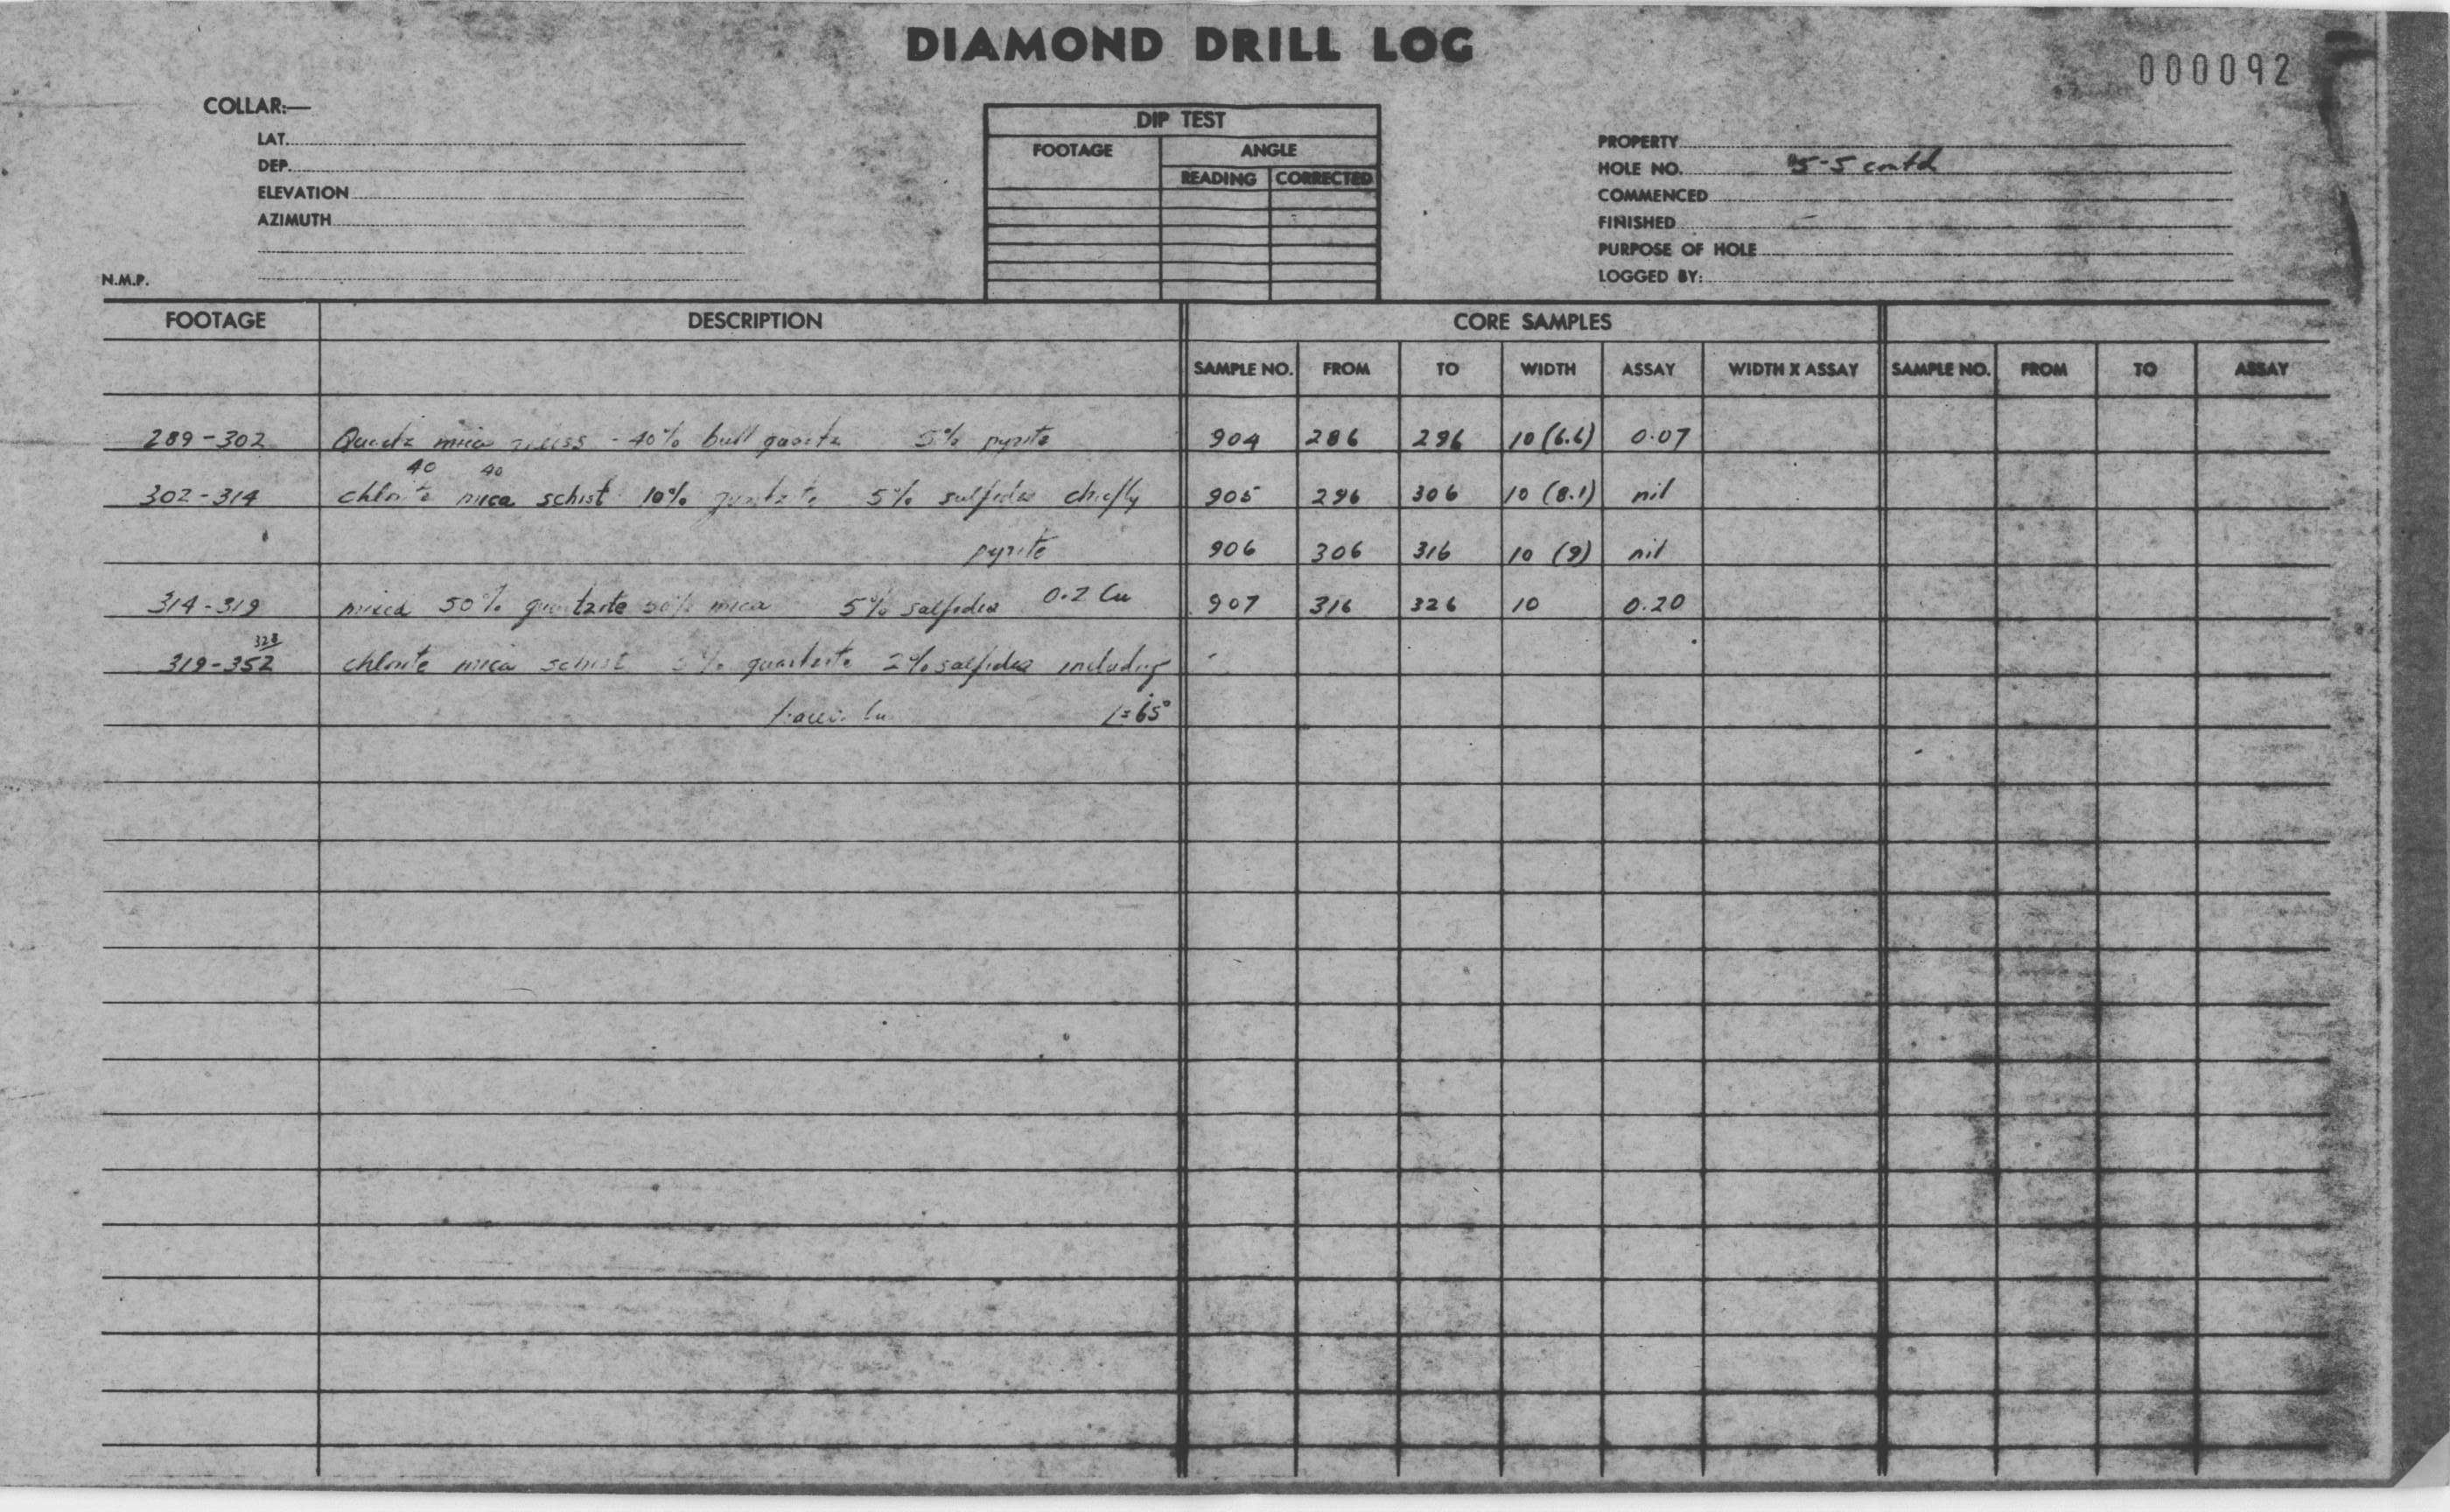 DIAMOND DRILL LOG
000092
COLLAR:—
LAT.
DEP.
ELEVATION
AZIMUTH
N.M.P.
DIP TEST
FOOTAGE ANGLE
READING CORRECTED
PROPERTY
HOLE NO. 5-5 contd
COMMENCED
FINISHED
PURPOSE OF HOLE
LOGGED BY:
FOOTAGE DESCRIPTION CORE SAMPLES
SAMPLE NO. FROM TO WIDTH ASSAY WIDTH X ASSAY SAMPLE NO. FROM TO ASSAY
289-302 Quartz mica gneiss - 40% bull quartz 5% pyrite 904 286 296 10 (6.6) 0.07
40 40
302-314 chlorite mica schist 10% quartzite 5% sulfides chiefly 905 296 306 10 (8.1) nil
pyrite 906 306 316 10 (9) nil
314-319 mixed 50% quartzite 50% mica 5% sulfides 0.2 Cu 907 316 326 10 0.20
328
319-352 chlorite mica schist 5% quartzite 2% sulfides including
traces Cu L=65°